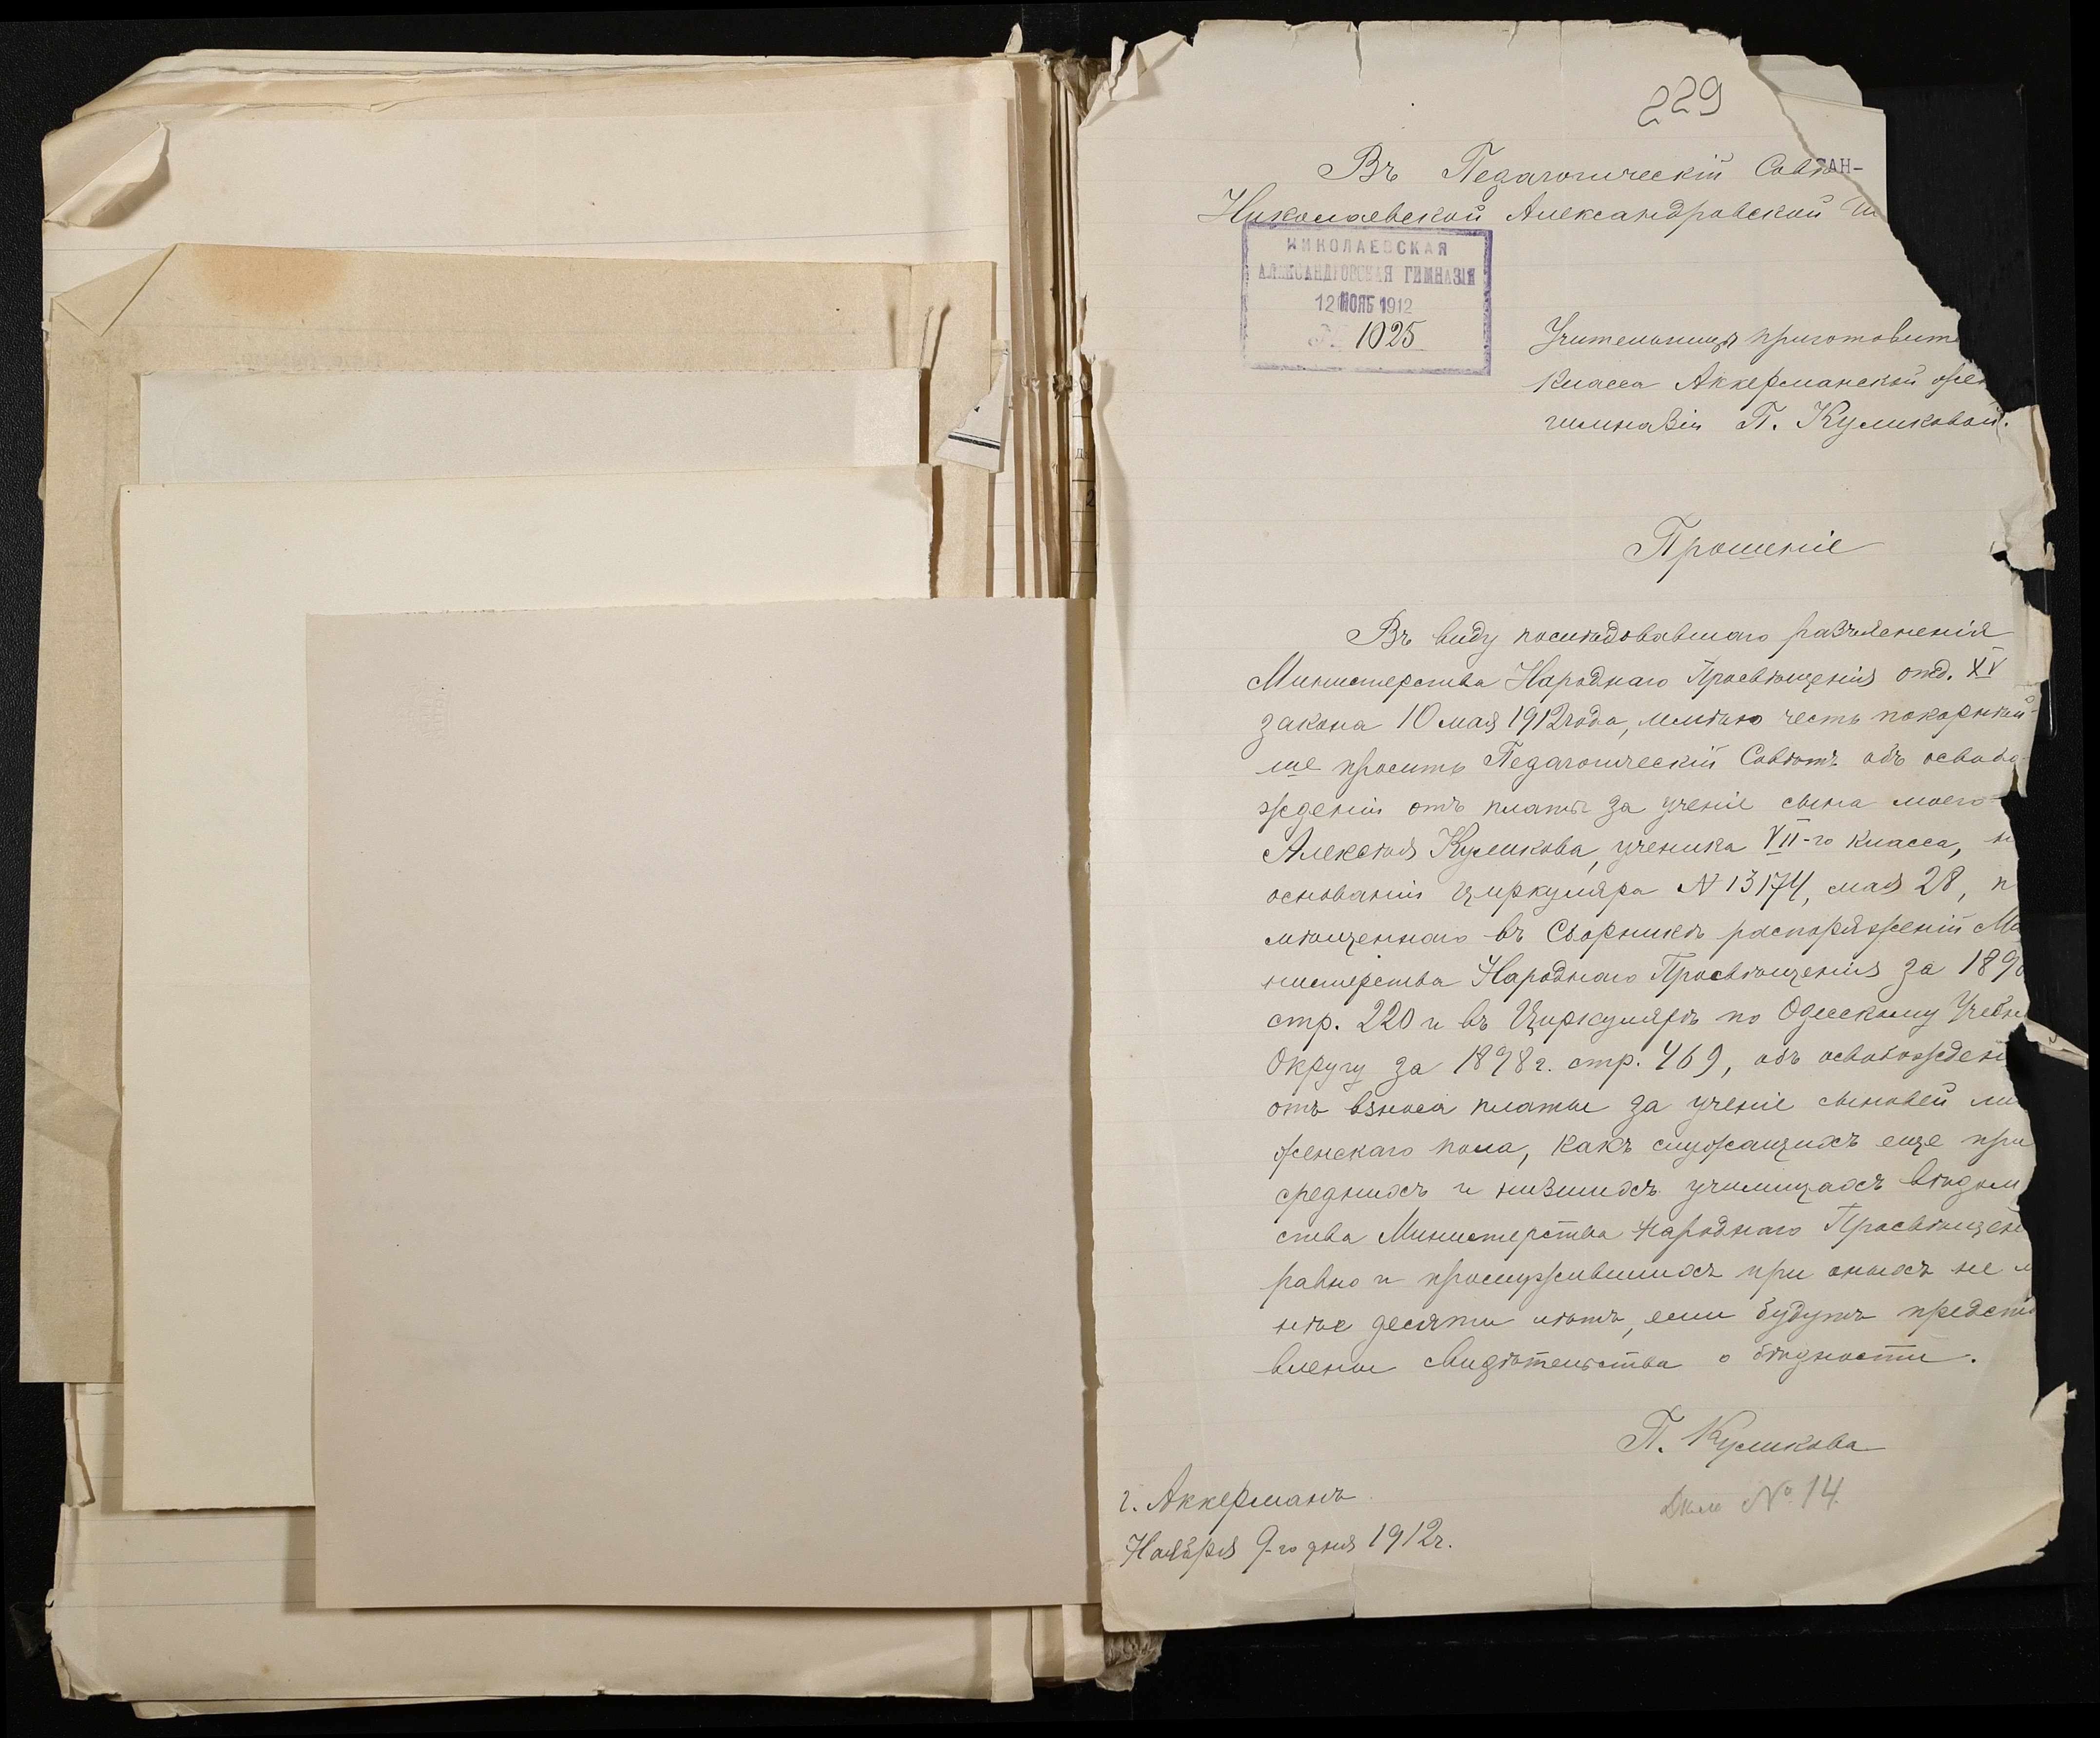 229
Въ Педагогическій Совѣ
АН-
Николаевской Александровской
НИКОЛАЕВСКАЯ
АЛЕКСАНДРОВСКАЯ ГИМНАЗІЯ
12 НОЯБ 1912
1025
Учительницы приготовите
класса Аккерманской жен
гимназіи П. Куликовой.
Прошеніе
Въ виду послѣдовавшаго разъясненія
Министерства Народнаго Просвѣщенія отд. XV
закона 10 мая 1912 года, имѣю честь покорнѣй-
ше просить Педагогическій Совѣтъ объ освобо-
жденіи отъ платы за ученіе сына моего
Алексѣя Куликова, ученика VII-го класса, н
основаніи циркуляра N 13174, мая 28, п
мѣщеннаго въ Сборникѣ распоряженій Ми
нистерства Народнаго Просвѣщенія за 189
стр. 220 и въ Циркулярѣ по Одесскому Учебн
Округу за 1898 г. стр. 469, объ освобожден
отъ взноса платы за ученіе сыновей ли
женскаго пола, какъ служащихъ еще при
среднихъ и низшихъ училищахъ вѣдом
ства Министерства Народнаго Просвѣщен
равно и прослужившихъ при оныхъ не м
нѣе десяти лѣтъ, если будутъ предста
влены свидѣтельства о бѣдности.
П. Куликова
г. Аккерманъ
Дѣло № 14
Ноября 9-го дня 1912 г.